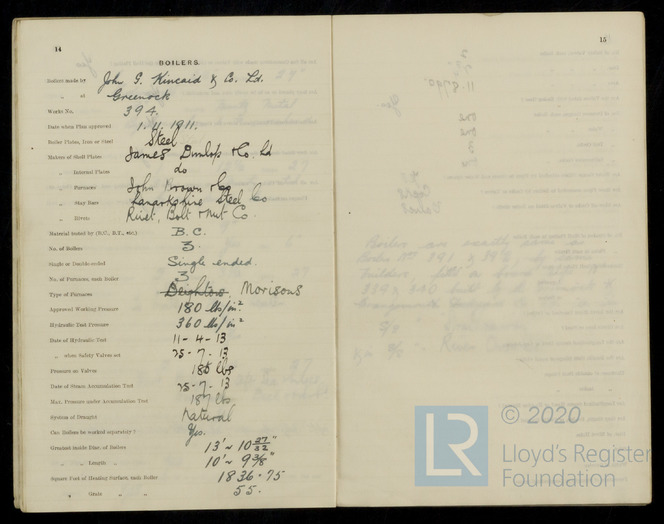 14
BOILERS.
Boiler made by John G. Kincaid & Co. Ld.
„ at Greenock
Works No. 394.
Date when Plan approved 1. 4. 1911.
Boiler Plates, Iron or Steel Steel
Makers of Shell Plates James Dunlop & Co. Ld
„ Internal Plates do
„ Furnaces John Brown & Co
„ Stay Bars Lanarkshire Steel Co
„ Rivets Rivet, Bolt & Nut Co.
Material tested by (B.C., B.T., etc.) B.C.
No. of Boilers 3.
Single or Double-ended Single ended.
No. of Furnaces, each Boiler 3
Type of Furnaces Deightons, Morisons
Approved Working Pressure 180 lbs/in².
Hydraulic Test Pressure 360 lbs/in²
Date of Hydraulic Test 11-4-13
„ when Safety Valves set 25-7-13
Pressure on Valves 185 lbs
Date of Steam Accumulation Test 25-7-13
Max. Pressure under Accumulation Test 187 lbs.
System of Draught Natural
Can Boilers be worked separately? Yes.
Greatest inside Diam. of Boilers 13' ~ 10 27/32"
„ „ Length „ 10' ~ 9 3/8"
Square Feet of Heating Surface, each Boiler 1836.75
„ Grate „ „ 55.
15
LR
© 2020
Lloyd's Register
Foundation